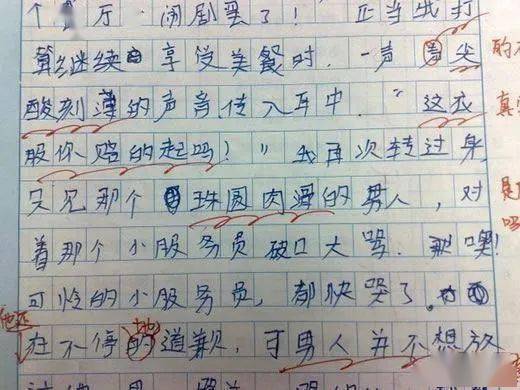 个厅·闹剧罢了！正当我打
算继续享受美餐时．一声尖
酸刻薄的声音传入耳中．“这衣
服你赔的起吗！”我再次转过身
只见那个珠圆肉的男人，对
着那个小服务员破口大骂．噢！
可怜的小服务员，都快哭了．
他还
在不停地道歉，可男人并不想放
的
真
是
吗